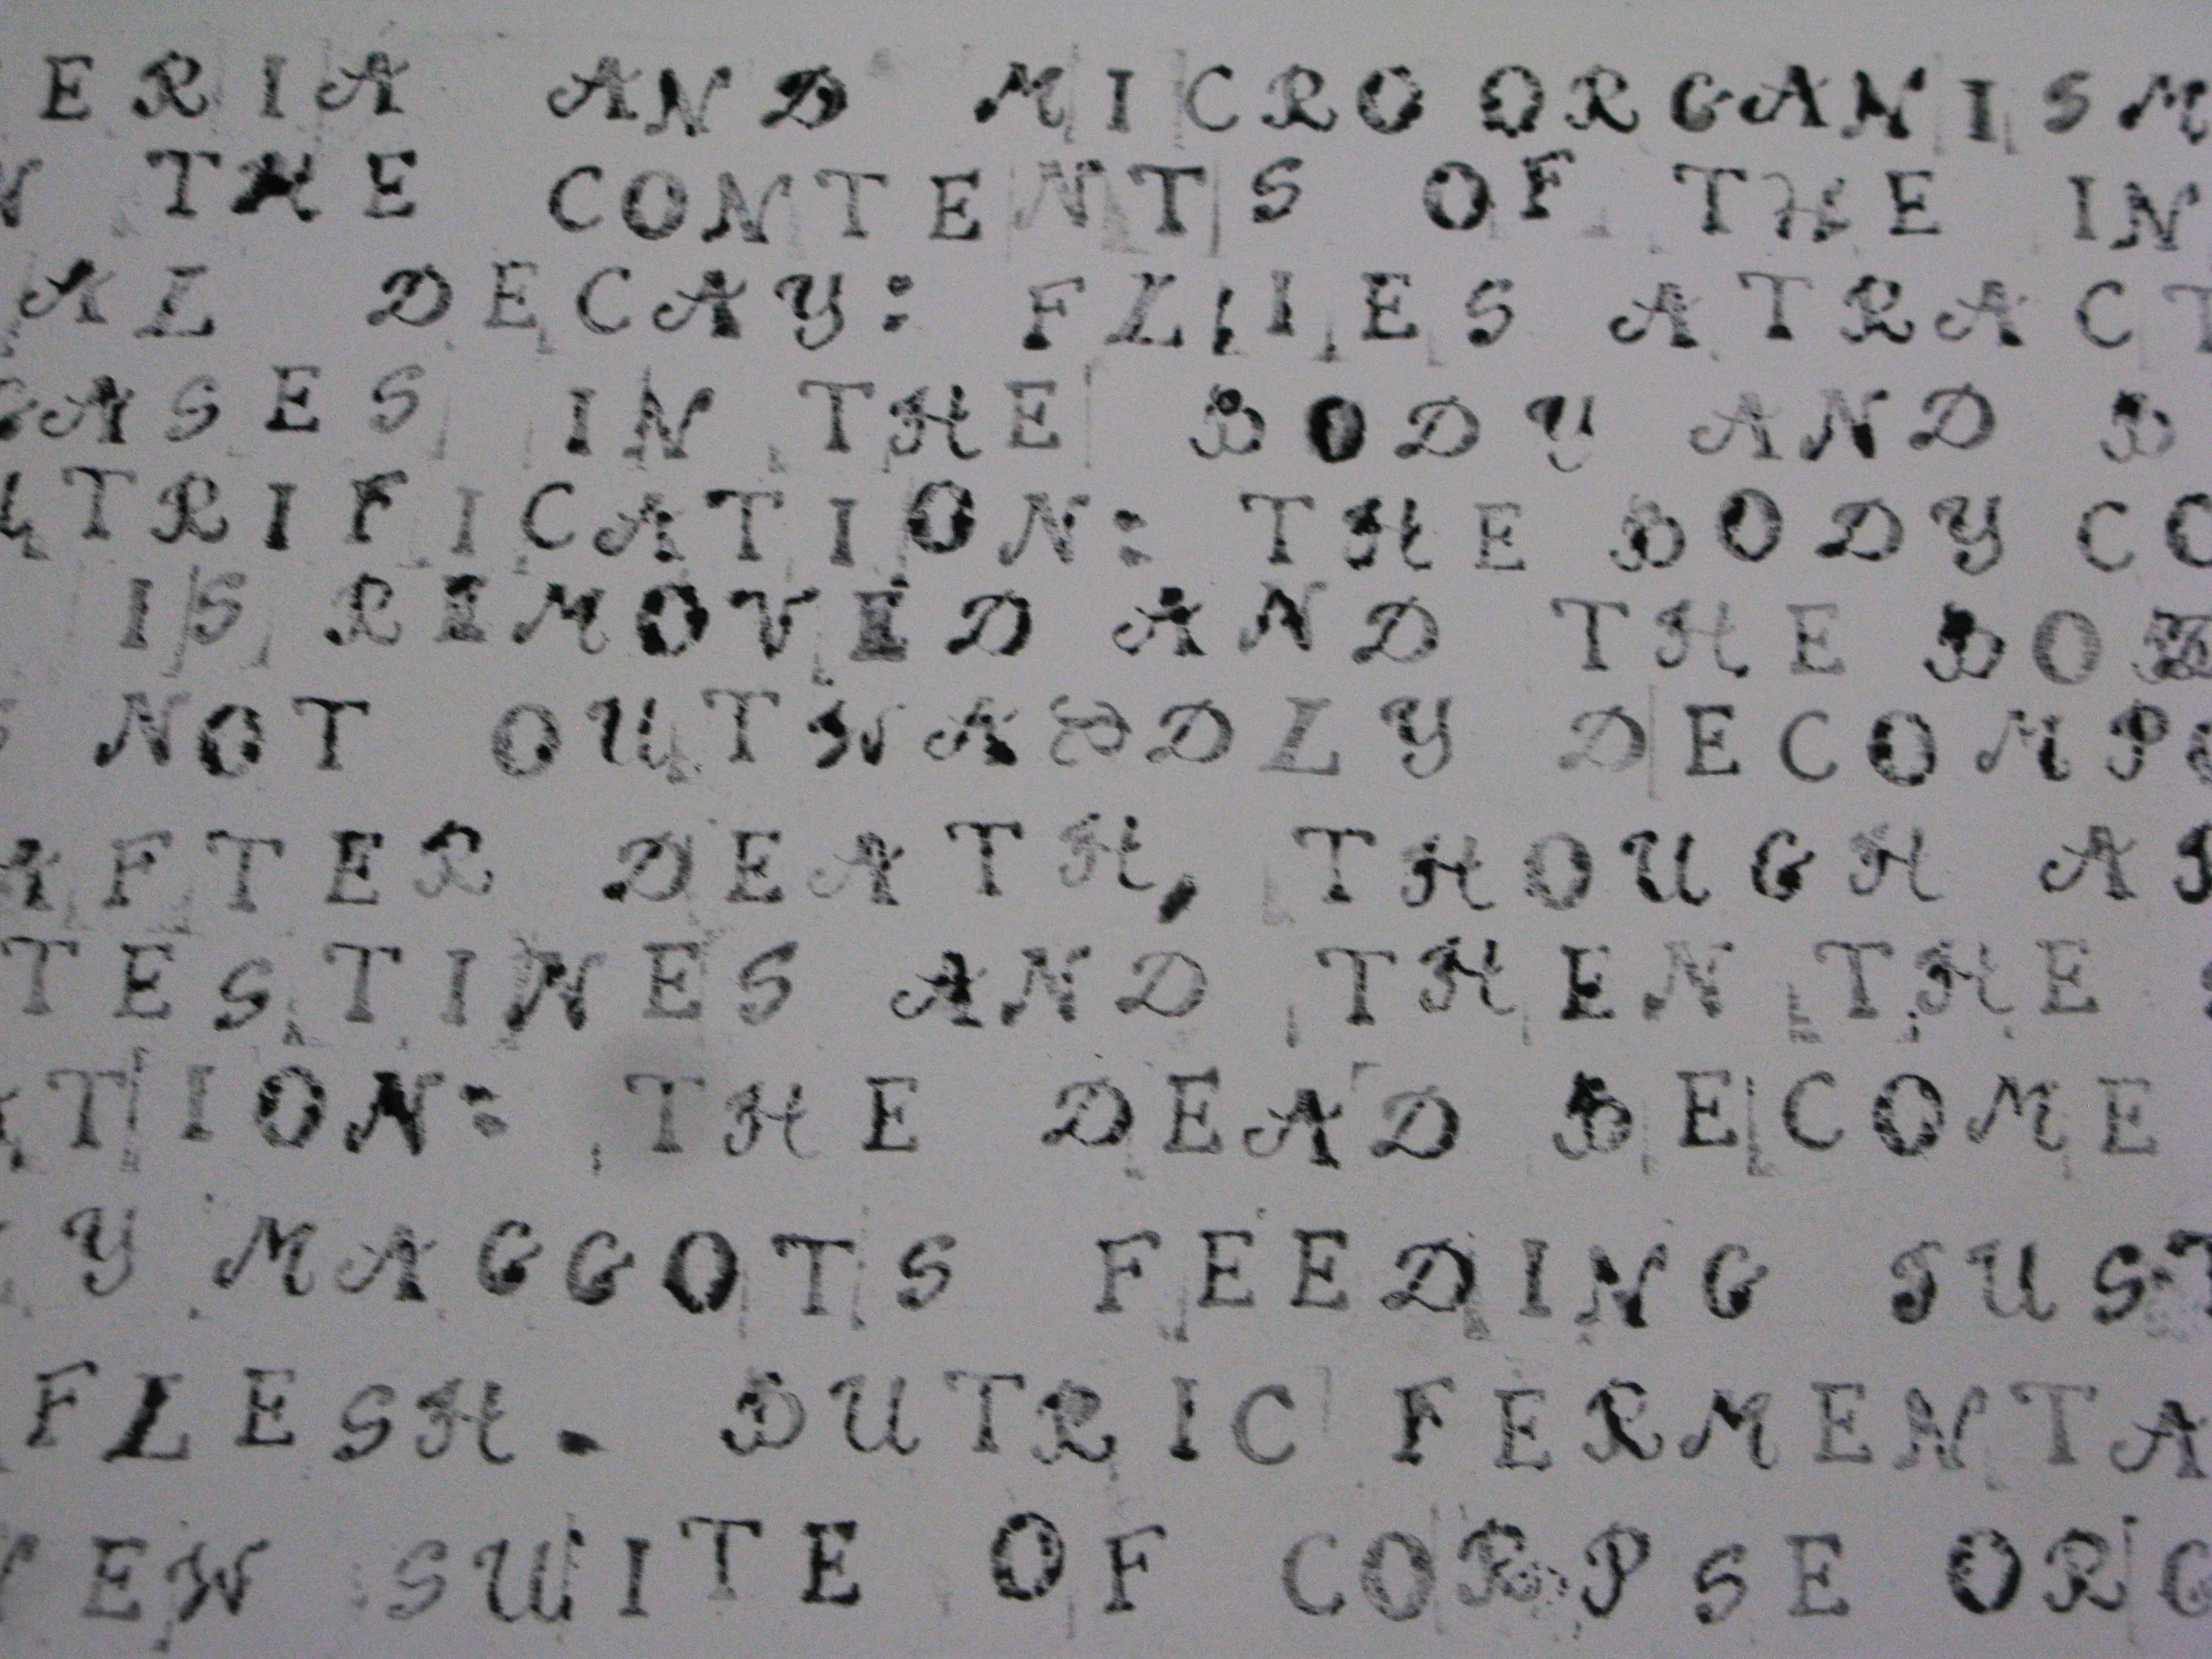 ERIA AND MICROORGANISM
N THE CONTENTS OF THE IN
AL DECAY: FLIES ATRACT
GASES IN THE BODY AND B
UTRIFICATION: THE BODY CO
IS REMOVED AND THE BOD
NOT OUTWARDLY DECOMPO
AFTER DEATH, THOUGH AR
TESTINES AND THEN THE
ATION: THE DEAD BECOME
Y MAGGOTS FEEDING JUST
FLESH. BUTRIC FERMENTA
EW SUITE OF CORPSE ORG